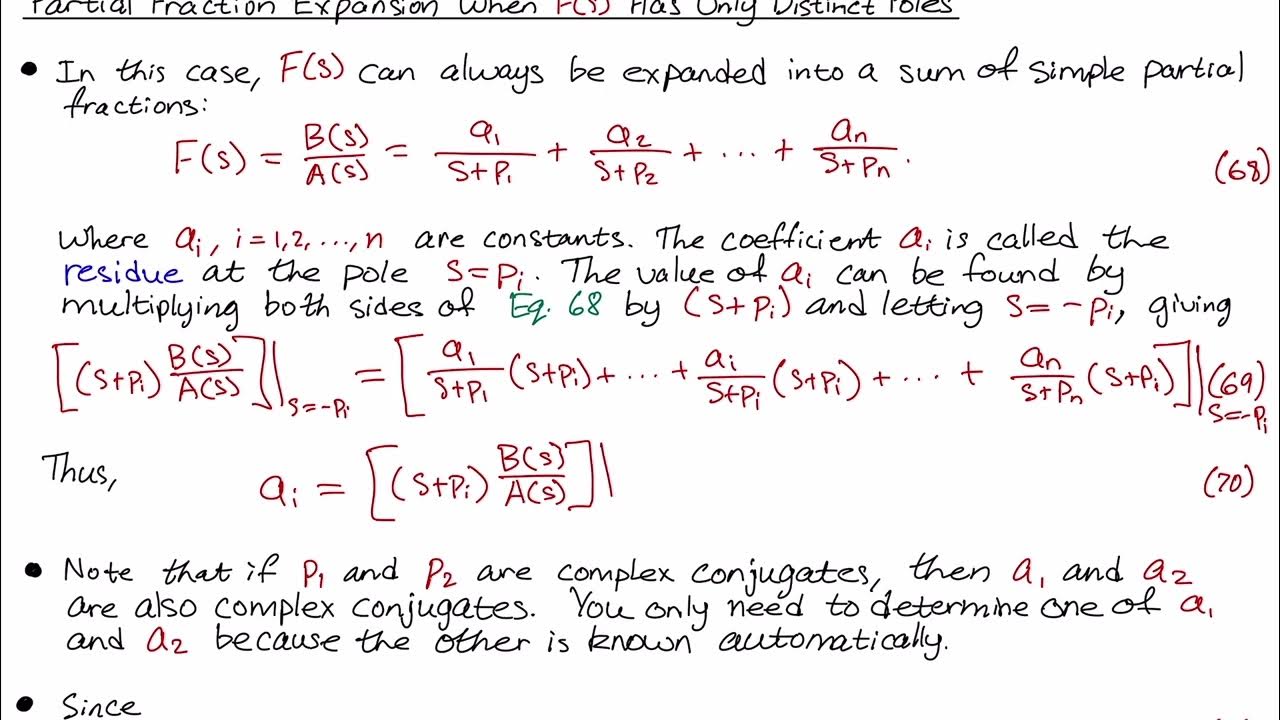 Partial Fraction Expansion When F(s) Has Only Distinct Poles
• In this case, F(s) can always be expanded into a sum of simple partial
fractions:
F(s) = B(s)/A(s) = a₁/(s+p₁) + a₂/(s+p₂) + ... + aₙ/(s+pₙ). (68)
where aᵢ, i=1,2,...,n are constants. The coefficient aᵢ is called the
residue at the pole s=pᵢ. The value of aᵢ can be found by
multiplying both sides of Eq. 68 by (s+pᵢ) and letting s=-pᵢ, giving
[(s+pᵢ) B(s)/A(s)]|s=-pᵢ = [a₁/(s+p₁) (s+pᵢ) + ... + aᵢ/(s+pᵢ) (s+pᵢ) + ... + aₙ/(s+pₙ) (s+pᵢ)]|s=-pᵢ (69)
Thus, aᵢ = [(s+pᵢ) B(s)/A(s)]| (70)
• Note that if p₁ and p₂ are complex conjugates, then a₁ and a₂
are also complex conjugates. You only need to determine one of a₁
and a₂ because the other is known automatically.
• Since